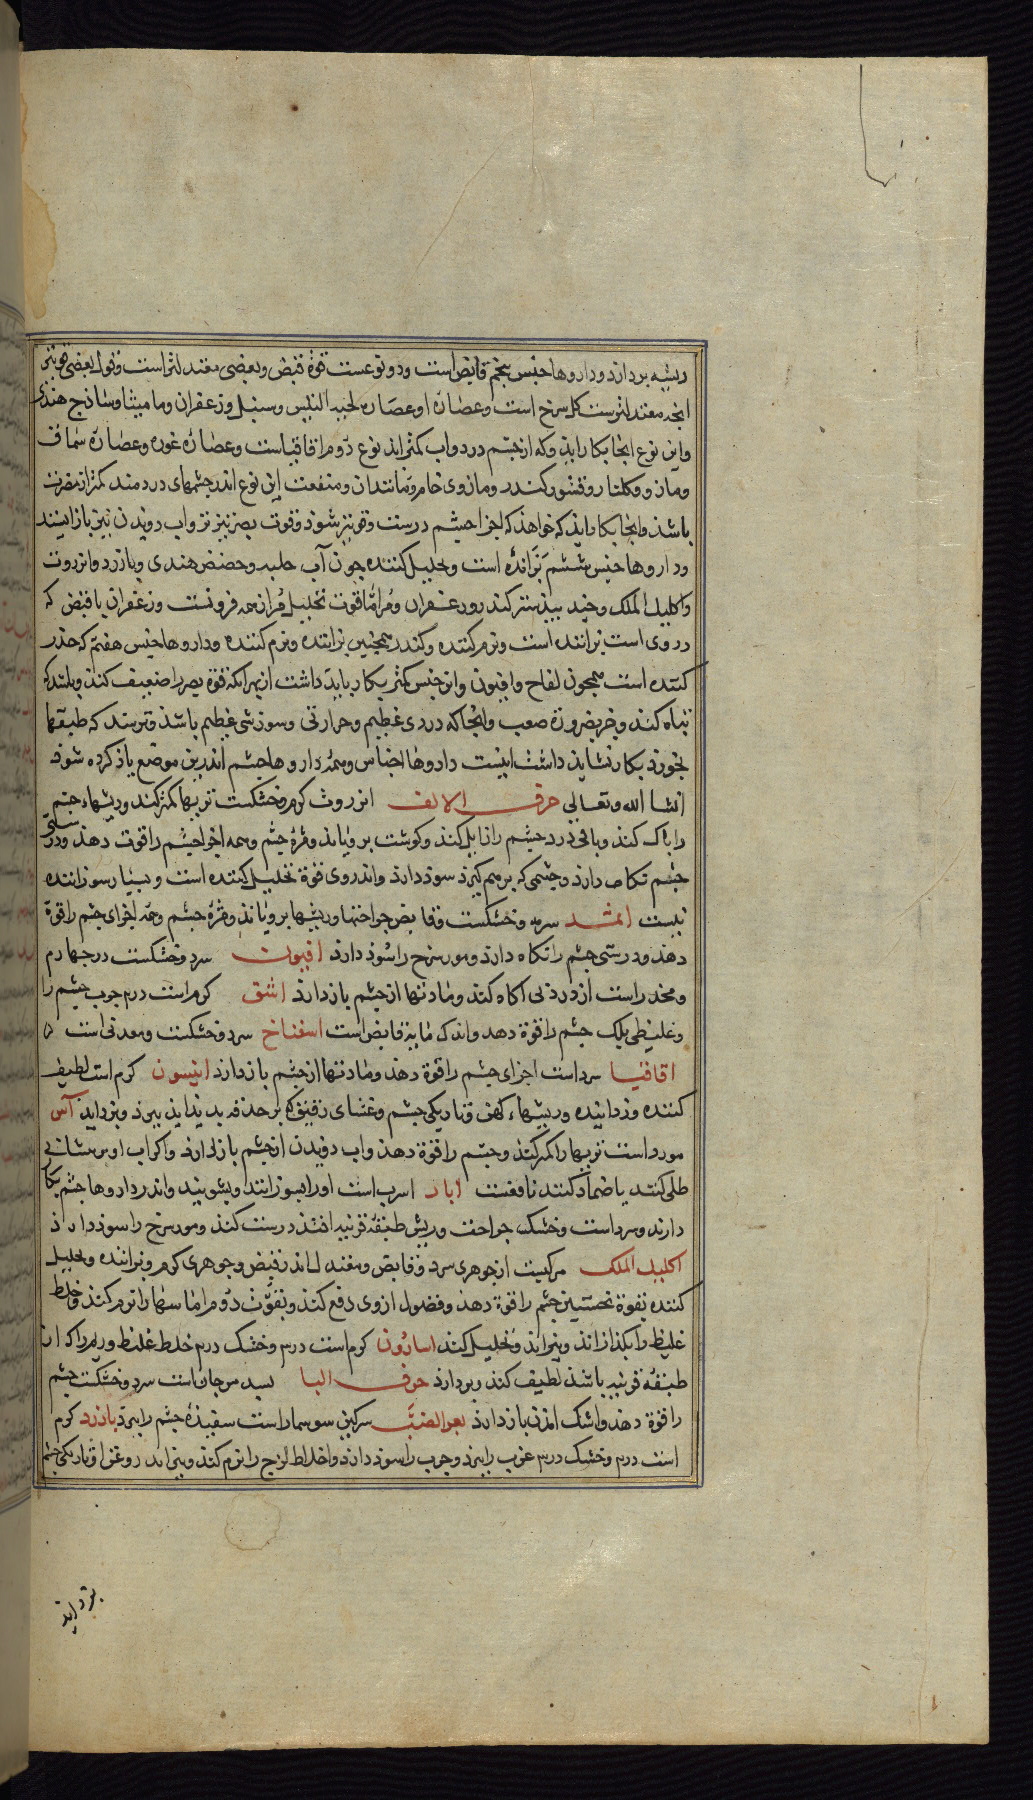 ریشه بردارد و داروها جنس پنجم قابض است و دو نوعست قوة قبض و بعضی معتدلتر است و قول بعضی قویتر
انچه معتدلترست کل سرخ است و عصاره او عصاره لحیه التیس و سنبل و زعفران و مامیثا و ساذج هندی
و این نوع انجا بکار اید که از چشم درد و اب کمتر اید نوع دوم اقاقیاست و عصاره غوره و عصاره سماق
و مازو و کلنار و قشور کندر و مازوی خام و مانند ان و منفعت این نوع اندر چشمهای دردمند کمتر از مضرت
باشد و انجا بکار اید که خواهد که اجزا چشم درست و قویتر شود و قوت بصر تیزتر و اب دویدن نیز باز ایستد
و داروها جنس ششم پزاننده است و تحلیل کننده چون آب حلبه و حضض هندی و بازرد و انزروت
و اکلیل الملک و جند بیدستر کندر و زعفران و مر اما قوت تحلیل مر از همه فزونست و زعفران با قبض که
در وی است پزاننده است و نرم کننده و کندر همچنین پزاننده و نرم کننده و داروها جنس هفتم که خدر
کننده است همچون لفاح و افیون و این جنس کمتر بکار باید داشت از بهر انکه قوة بصر را ضعیف کند و باشد که
تباه کند و جز بضرورة صعب و انجا که دردی عظیم و حرارتی و سوزشی عظیم باشد و ترسند که طبقها
بخورد بکار نشاید داشت اینست داروها اجناس و همه داروها چشم اندرین موضع یاد کرده شود
انشا الله و تعالی حرف الالف انزروت کرم و خشکست تریها کمتر کند و ریشهاء چشم
را پاک کند و باقی درد چشم را زایل کند و کوشت برویاند و مژۀ چشم و همه اجزا چشم را قوت دهد و درستی
چشم نکاه دارد و چشمی که برهم کیرد سود دارد و اندر وی قوة تحلیل کننده است و بسیار سوزاننده
نیست اثمد سرد و خشکست و قابض جراحتها و ریشها برویاند و مژۀ چشم و همه اجزای چشم را قوة
دهد و درستی چشم را نکاه دارد و مورسرج را سود دارد افیون سرد و خشکست در چهارم
و مخدر است از درد بی اکاه کند و مادتها از چشم باز دارد اشق کرم است در چرب چشم را
و غلیظی پلک چشم را قوة دهد و اندک مایه قابض است اسفناخ سرد و خشکست و معدنی است
اقاقیا سرد است اجزای چشم را قوة دهد و مادتها از چشم باز دارد انیسون کرم است لطیف
کننده و زداینده و ریشهاء کهن و تاریکی چشم و غشای رقیق که بر حدقه پدید اید ببرد و بزداید آس
مورد است تریها را کمتر کند و چشم را قوة دهد و اب دویدن از چشم باز دارد و اکر اب او بر پیشانی
طلی کنند یا ضماد کنند نافعست ابار اسرب است او را بسوزانند و بشویند و اندر داروها چشم بکار
دارند و سرد است و خشک جراحت و ریش طبقۀ قرنیه افتد درست کند و مورسرج را سود دارد
اکلیل الملک مرکبست از جوهری سرد و قابض و معتدل اندر قبض و جوهری کرم و پزاننده و تحلیل
کننده بقوة نخستین چشم را قوة دهد و فضول از وی دفع کند و بقوّت دوم اماسها را نرم کند و خلط
غلیظ را بکدازاند و بپزاند و تحلیل کند اسارون کرم است درم و خشک درم خلط غلیظ و ورم را که از
طبقۀ قرنیه باشد لطیف کند و بردارد حرف البا بسد مرجان است سرد و خشکست چشم
را قوة دهد و اشک امدن باز دارد بعر الضب سرکین سوسمار است سفیدۀ چشم را ببرد بازرد کرم
است درم و خشک درم غرب را ببرد و جرب را سود دارد و اخلاط لزج را نرم کند و بپزاند روغن او تاریکی چشم
بزداید